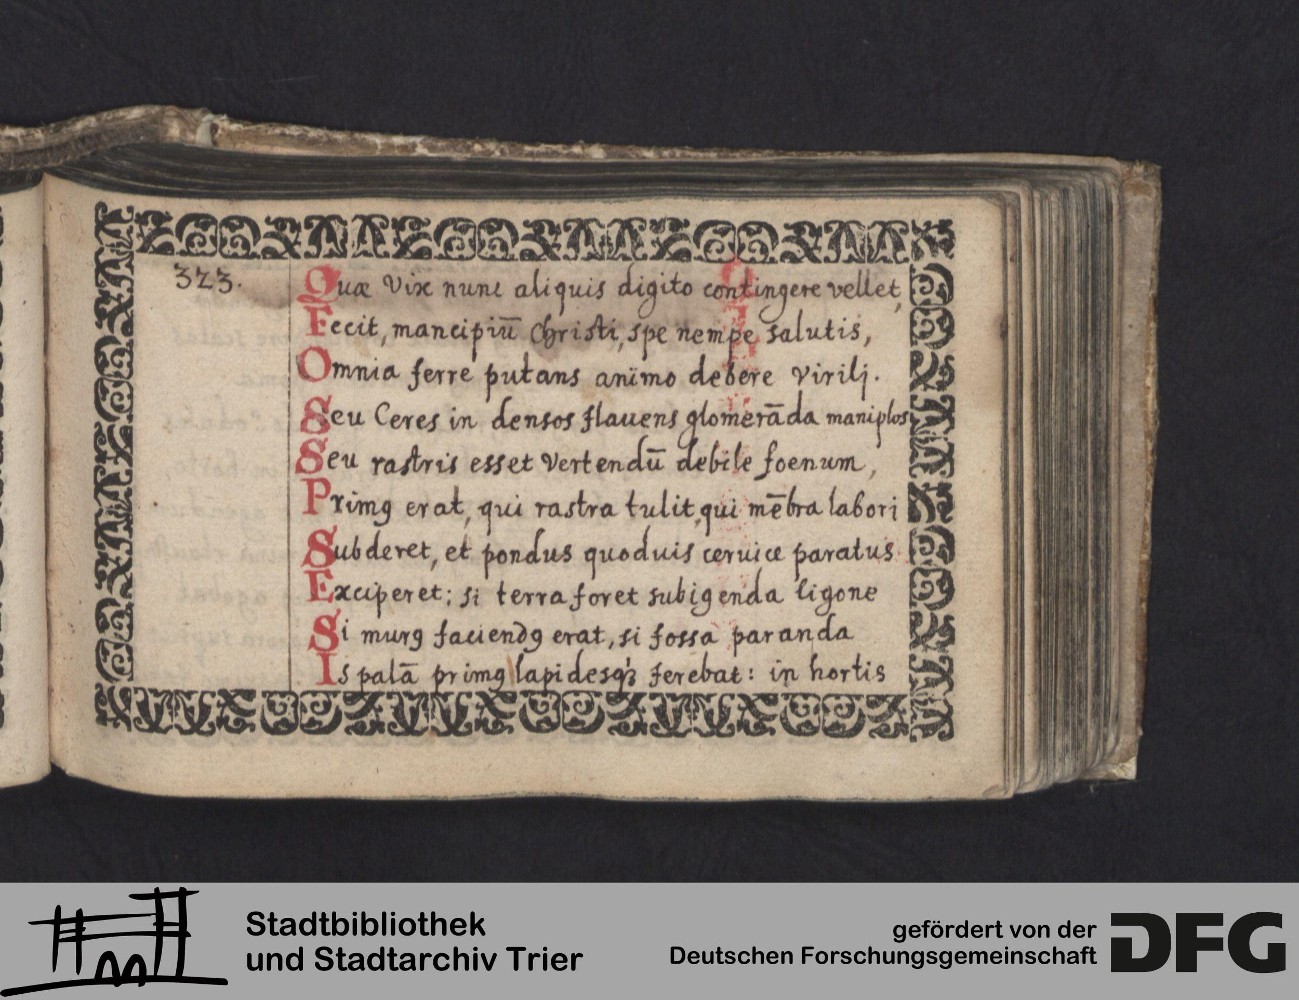 323.
Quæ vix nunc aliquis digito contingere vellet,
Fecit, mancipiū Christi, spe nempe salutis,
Omnia ferre putans animo debere virilj.
Seu Ceres in densos flauens glomerāda maniplos
Seu rastris esset vertendū debile foenum,
Primꝯ erat, qui rastra tulit, qui mēbra labori
Subderet, et pondus quoduis ceruice paratus
Exciperet: si terra foret subigenda ligone
Si murꝯ faciendꝯ erat, si fossa paranda
Is palā primꝯ lapidesqꝫ ferebat: in hortis
Stadtbibliothek
und Stadtarchiv Trier
gefördert von der
Deutschen Forschungsgemeinschaft
DFG